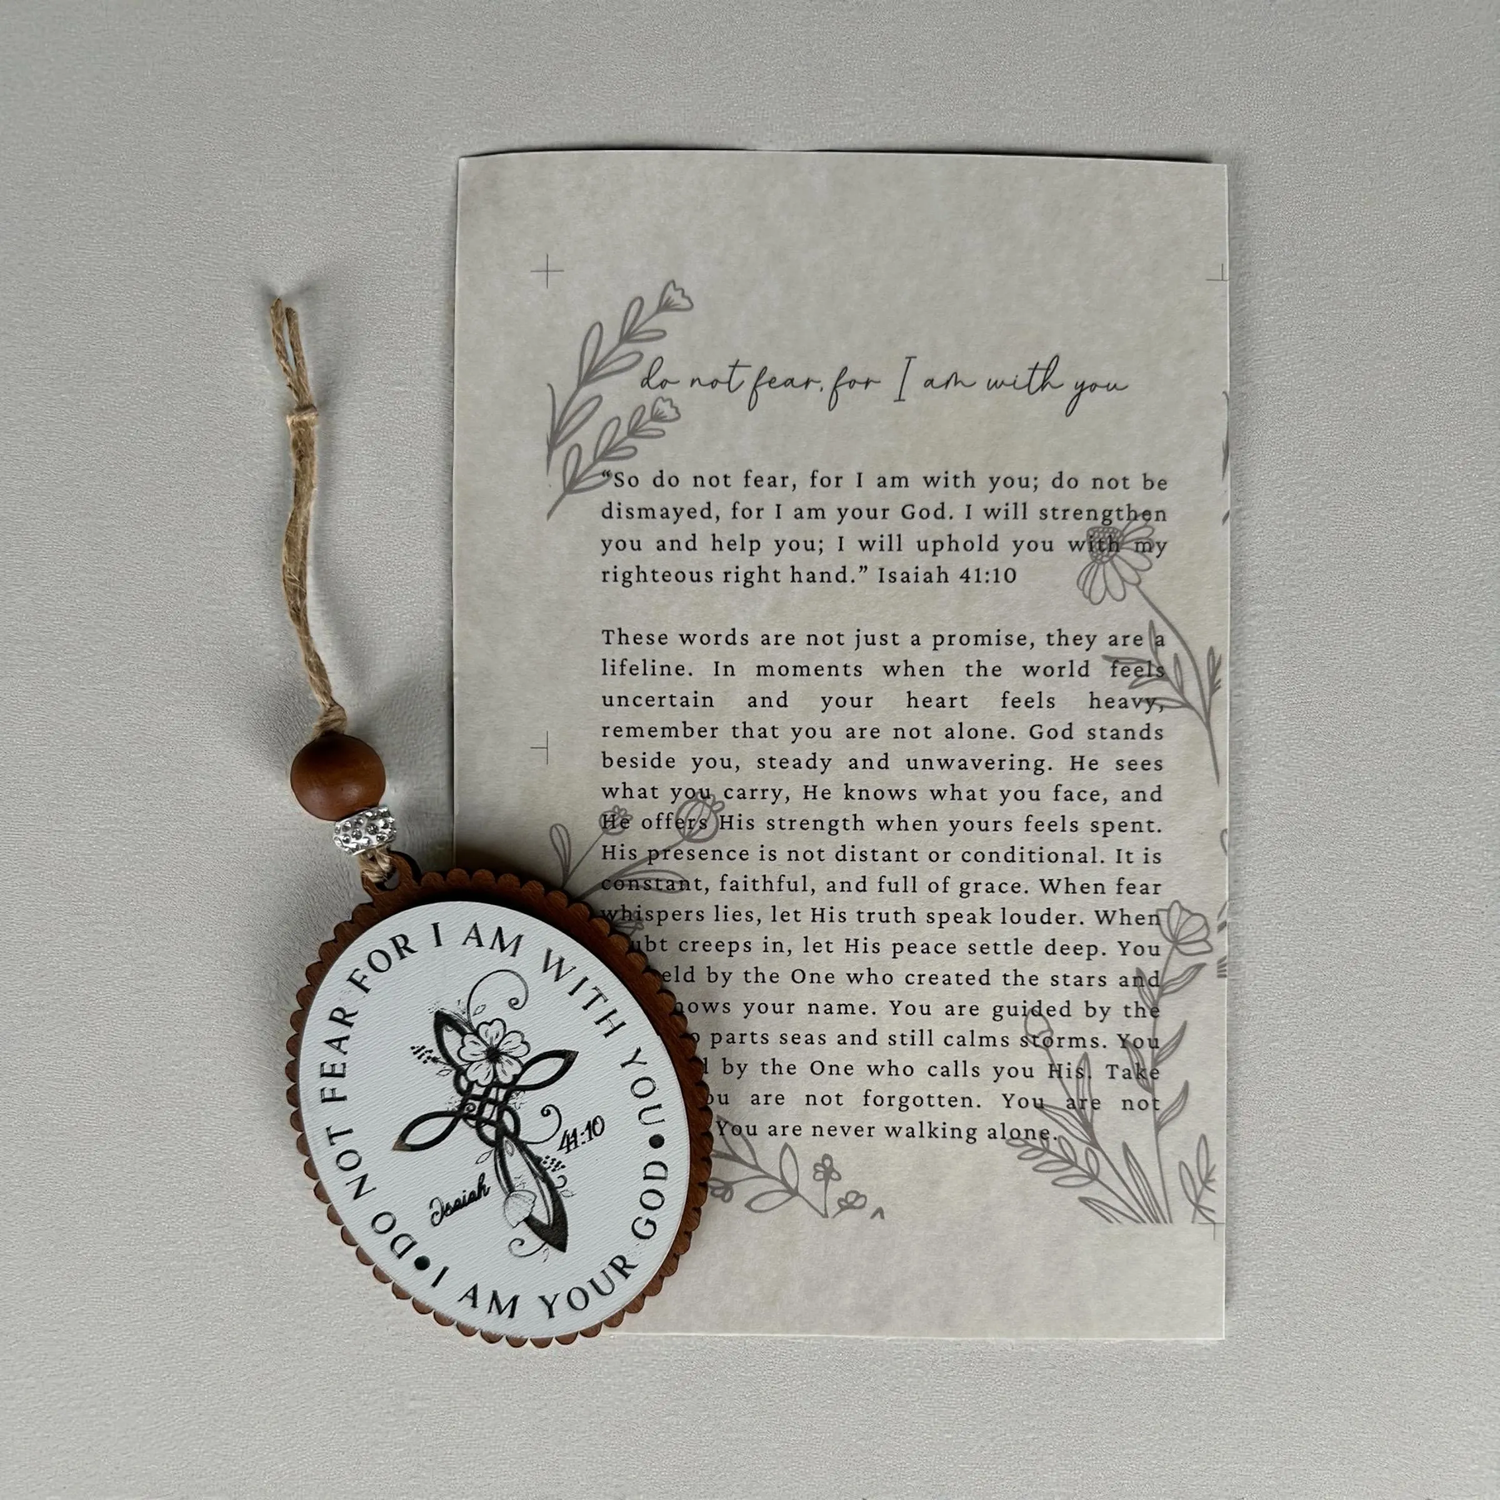 do not fear, for I am with you
“So do not fear, for I am with you; do not be
dismayed, for I am your God. I will strengthen
you and help you; I will uphold you with my
righteous right hand.” Isaiah 41:10
These words are not just a promise, they are a
lifeline. In moments when the world feels
uncertain and your heart feels heavy,
remember that you are not alone. God stands
beside you, steady and unwavering. He sees
what you carry, He knows what you face, and
He offers His strength when yours feels spent.
His presence is not distant or conditional. It is
constant, faithful, and full of grace. When fear
whispers lies, let His truth speak louder. When
creeps in, let His peace settle deep. You
by the One who created the stars and
your name. You are guided by the
parts seas and still calms storms. You
by the One who calls you His. Take
are not forgotten. You are not
You are never walking alone.
DO NOT FEAR FOR I AM WITH YOU • I AM YOUR GOD •
Isaiah
41:10